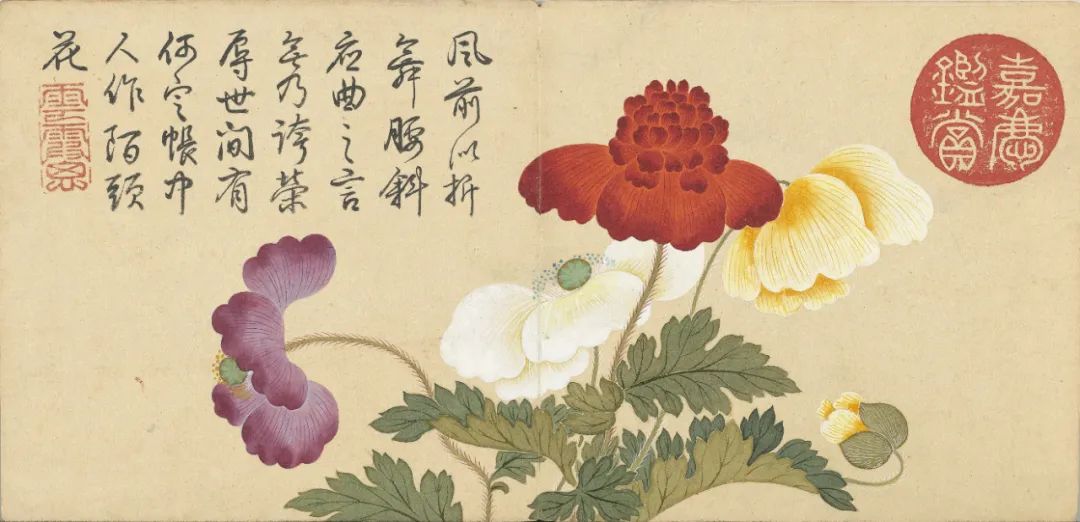 風前似折
舞腰斜
應曲之言
無乃誇榮
辱世間有
何定帳中
人作陌頭
花
雲霞思
嘉慶
鑑賞